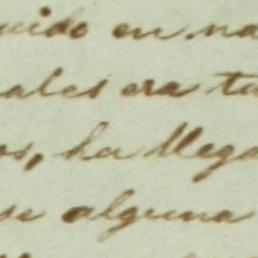 uido en na
ales era ta
os, ha llega
se alguna